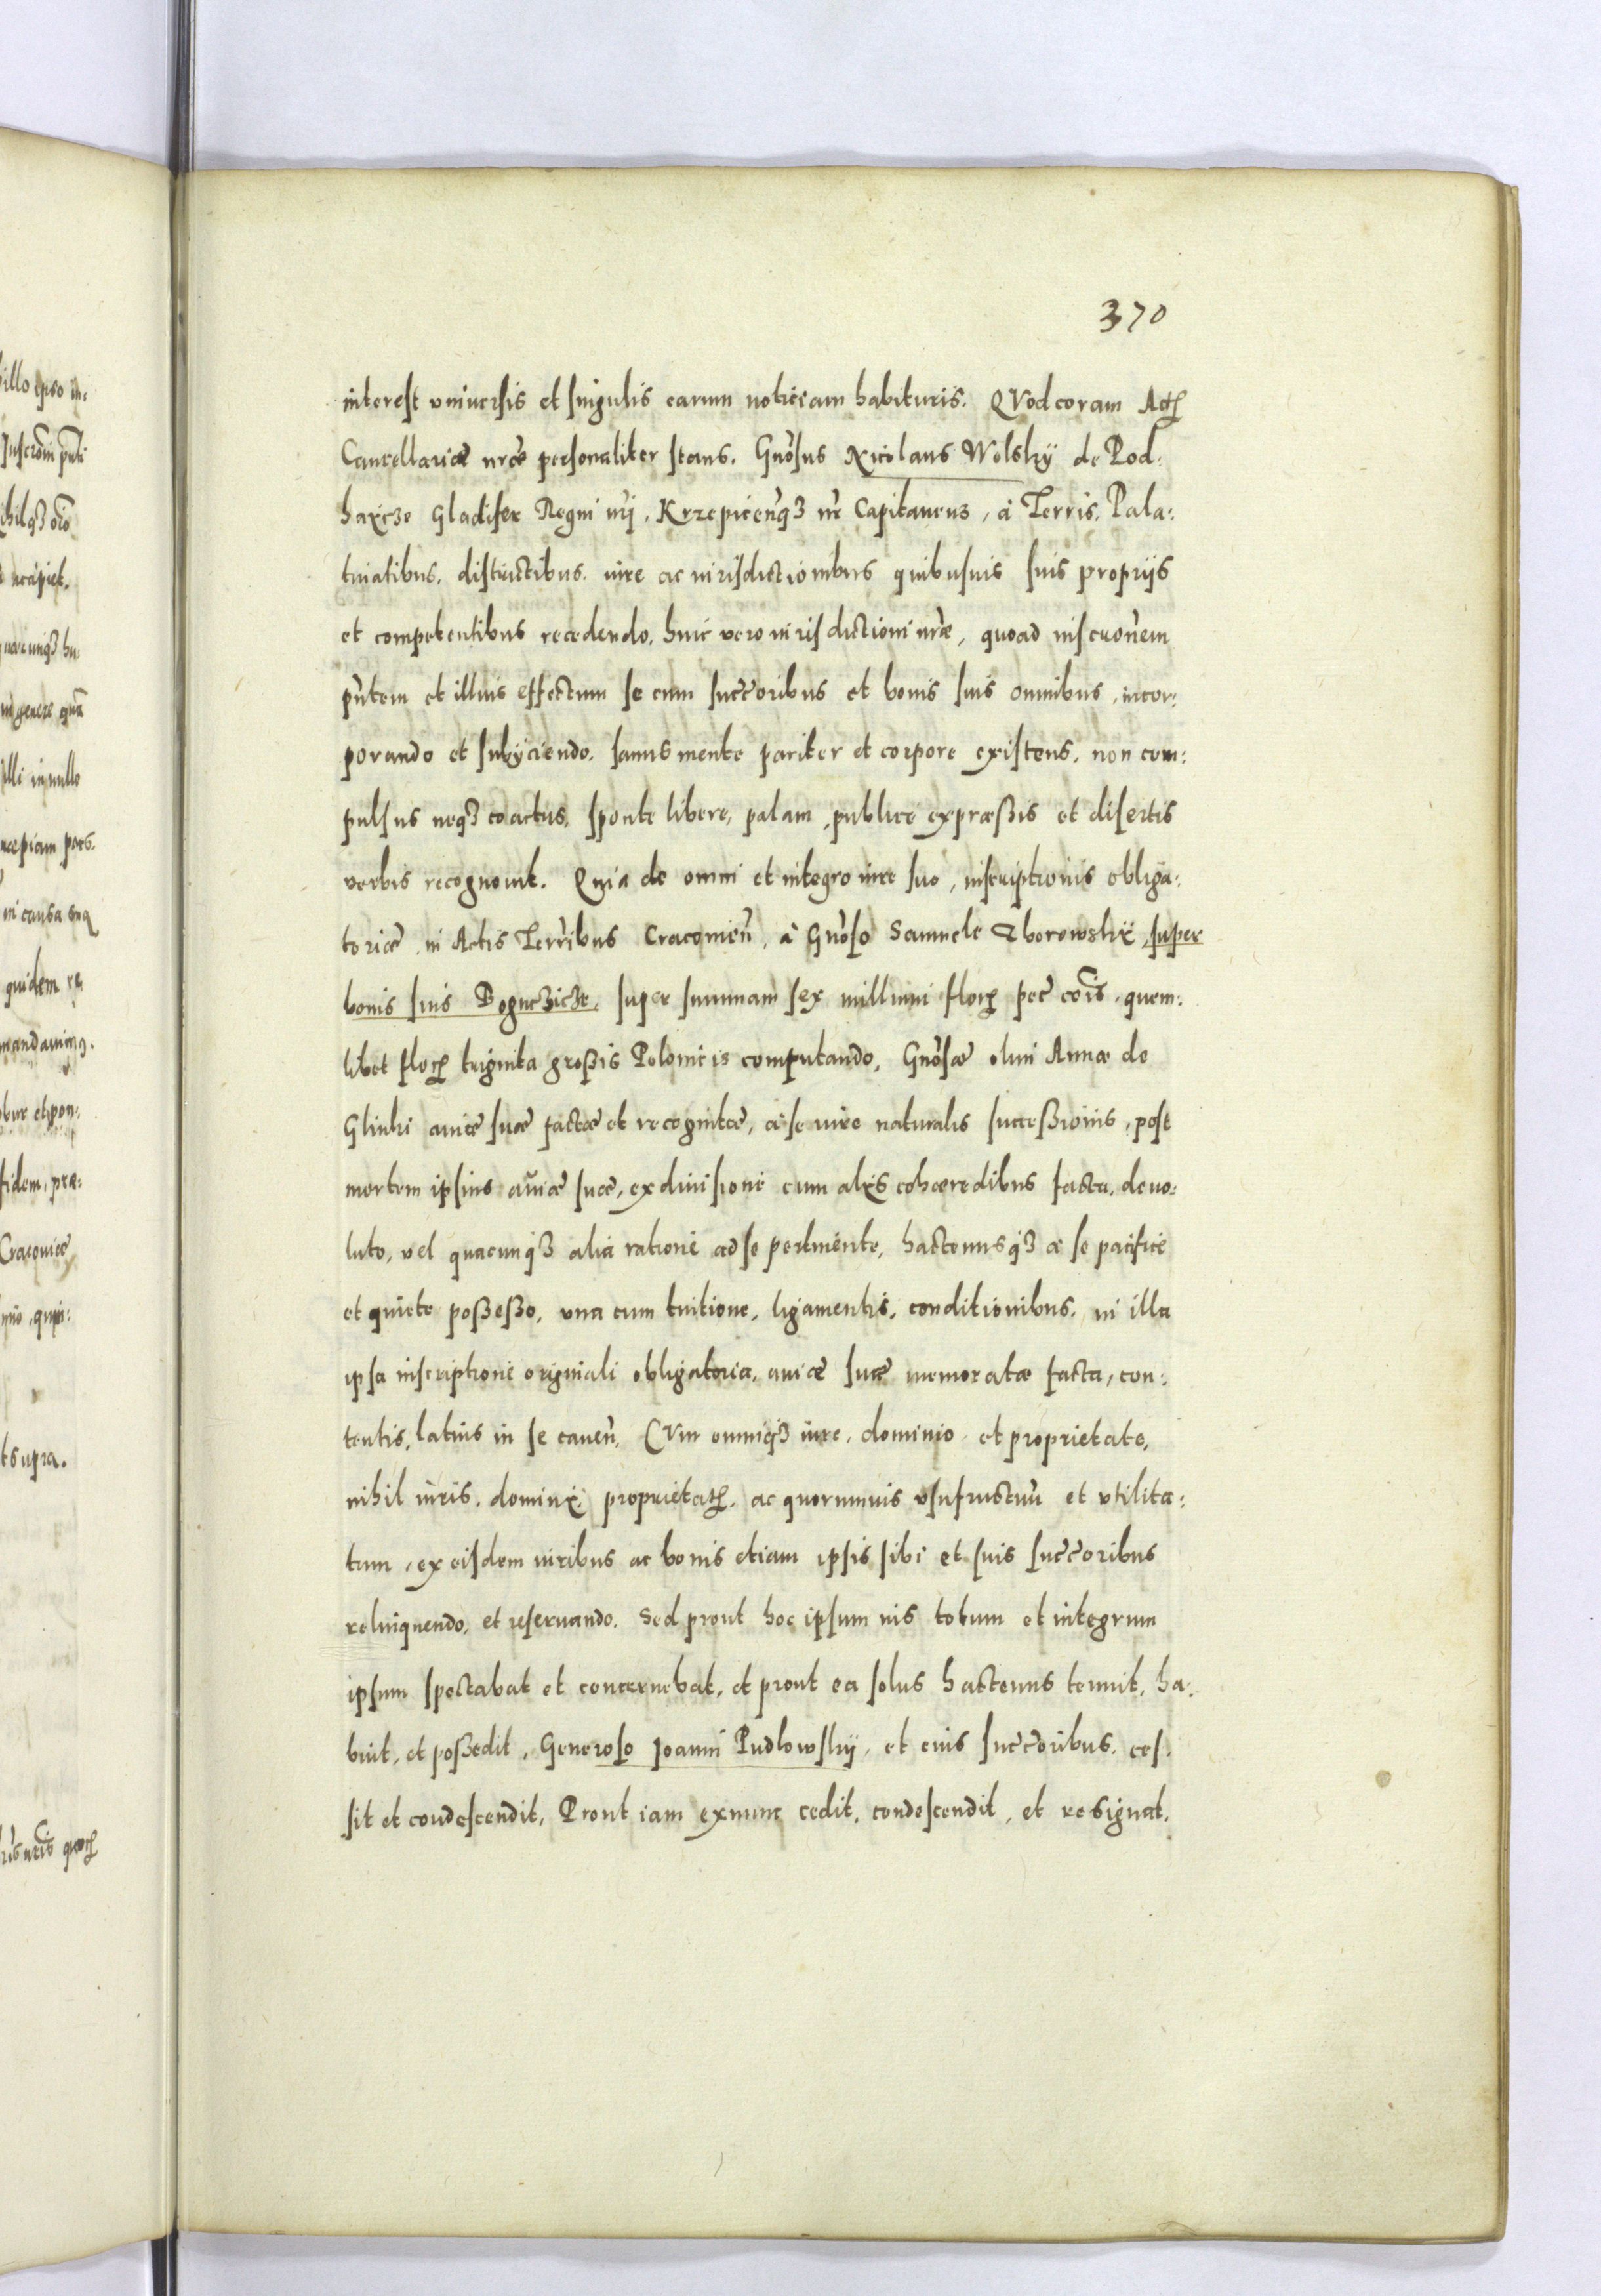 370
interest vniuersis et singulis earum noticiam habituris. QVod coram Actꝝ
Cancellariæ nr̃æ personaliter stans. Gnõsus Nicolaus Wolskÿ de Pod-
haycze Gladifer Regni nr̃i, Krzepiceñqꝫ nr̃ Capitaneus, à Terris, Pala-
tinatibus, districtibus, iure ac iurisdictionibus quibusuis suis proprijs
et competentibus recedendo, huic vero iurisdictioni nr̃æ, quoad inscrõnem
pñtem et illius effectum se cum succ̃oribus et bonis suis omnibus, incor-
porando et subijciendo, sanus mente pariter et corpore existens, non com-
pulsus neqꝫ coactus, sponte libere, palam, publice expræßis et disertis
verbis recognouit. Quia de omni et integro iure suo, inscriptionis obliga-
toriæ, in Actis Terr̃ibus Cracouieñ, à Gnõso Samuele Zborowskÿ, super
bonis suis Boguczicze, super summam sex millium florꝝ pec̃ cõis, quem-
libet florꝝ triginta großis Polonicis computando, Gnõsæ olim Annæ de
Glinki auiæ suæ factæ et recognitæ, ad se iure naturalis succeßionis, post
mortem ipsius auiæ suæ, ex diuisione cum alijs cohæredibus facta, deuo-
luto, vel quacunqꝫ alia ratione ad se pertinente, hactenusqꝫ a se pacifice
et quiete poßeßo, vna cum tuitione, ligamentis, conditionibus, in illa
ipsa inscriptione originali obligatoria, auiæ suæ memoratæ facta, con-
tentis, latius in se caueñ, CVm omniqꝫ iure, dominio et proprietate,
nihil iuris, dominij, proprietatꝝ, ac quorumuis vsufructuũ et vtilita-
tum, ex eisdem iuribus ac bonis etiam ipsis sibi et suis succ̃oribus
relinquendo, et reseruando. Sed prout hoc ipsum ius totum et integrum
ipsum spectabat et concernebat, et prout ea solus hactenus tenuit, ha-
buit, et poßedit, Generoso Joanni Pudlowskÿ, et eius succ̃oribus, ces-
sit et condescendit, Prout iam exnunc cedit, condescendit, et resignat,